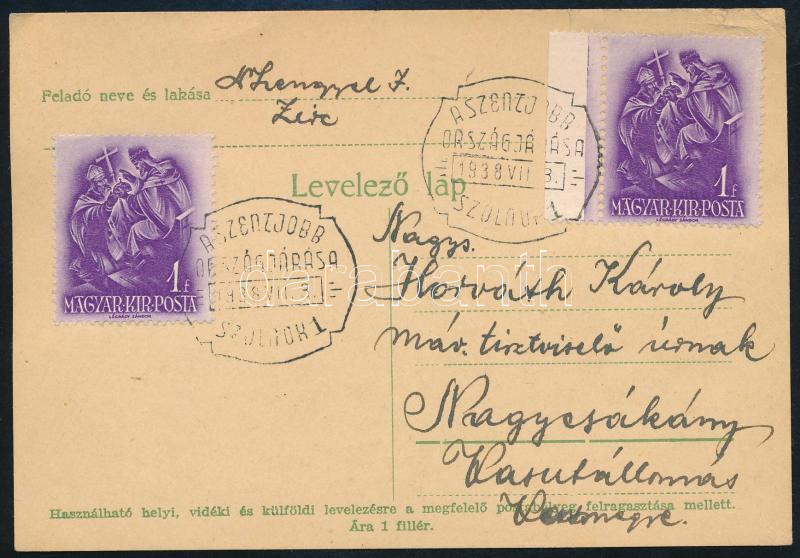 Feladó neve és lakása Lengyel J.
Zirc
A SZENTJOBB
ORSZÁGJÁRÁSA
1938 VII 3.
SZOLNOK 1
1f
MAGYAR·KIR·POSTA
LÉGRÁDY SÁNDOR
Levelező lap
1f
MAGYAR·KIR·POSTA
LÉGRÁDY SÁNDOR
A SZENTJOBB
ORSZÁGJÁRÁSA
1938 VII 3.
SZOLNOK 1
darabanth
Nagys.
Horváth Károly
máv. tisztviselő úrnak
Nagycsákány
Vasutállomás
Vasmegye.
Használható helyi, vidéki és külföldi levelezésre a megfelelő postabélyeg felragasztása mellett.
Ára 1 fillér.